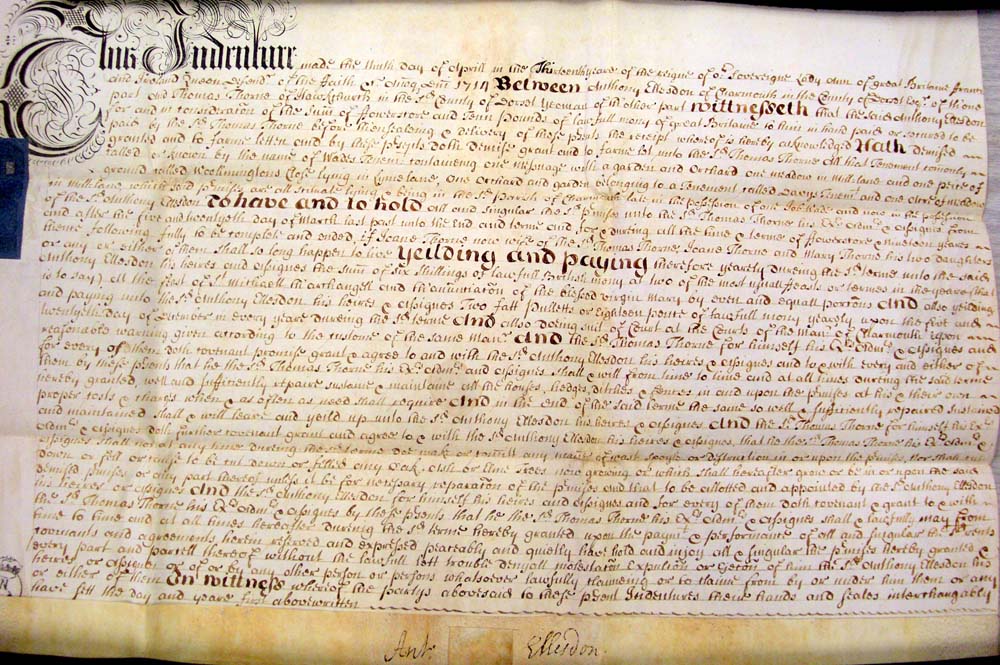 This Indenture made the Ninth day of Aprill in the Thirteenth yeare of the reigne of or. Sovereigne Lady Ann of great Brittaine France
and Ireland Queen defendr. of the Faith &c Annoq Dni 1714 Between Anthony Ellesdon of Charmouth in the County of Dorset Esqr. of the one
part and Thomas Thorne of in the sd. County of Dorset Yeoman of th other part Wittnesseth that the said Anthony Ellesdon
for and in consideration of the Sum of Flowerstore and Tenn Pounds of lawfull mony of great Brittaine to him in hand paid or secured to be
paid by the sd. Thomas Thorne before thensealing & delivery of these psents the receipt whereof is hereby acknowledged Hath demised
granted and to farme letten and by these psents doth demise grant and to farme let unto the sd. Thomas Thorne All that Tenement comonly
called or known by the name of Wades Tenemt. contayneing one messuage with a garden and Orchard one meadow in Mill lane and one peice of
ground called Close lying in Lymelane, one Orchard and garden belonging to a Tenement called Davys Tenemt. and one Close of meadow
in Mill lane which said pmises are all scituate lying & being in the sd. Parish of Charmouth late in the possession of one and now in the possession
of the sd. Anthony Ellesdon To have and to hold all and singular the sd. pmises unto the sd. Thomas Thorne his Exrs. Admrs. & Assignes from
and after the five and twentyeth day of March last past unto the End and terme and for & during all the time & terme of Flowerstore & nineteen yeares
thence following fully to be compleate and ended, if Joane Thorne now wife of the sd. Thomas Thorne, Joane Thorne and Mary Thorne his two daughters
or any or either of them shall so long happen to live Yeilding and paying therefore yearely during the sd. terme unto the said
Anthony Ellesdon his heires and assignes the sum of six shillings of lawfull Brittish mony at two of the most usuall feasts or termes in the yeare (that
is to say) At the Feast of St. Michaell Tharchangell and Thanunciation of the blessed virgin Mary by even and equall portions And also yeilding
and paying unto the sd. Anthony Ellesdon his heires & assignes Two fatt Pulletts or Eighteen pence of lawfull mony yearely upon the first and
twentyeth day of December in every yeare during the sd. terme And also doeing suit of Court at the Courts of the manr. of Charmouth upon
reasonable warning given according to the custome of the same manr. And the sd. Thomas Thorne for himself his Exrs. Admrs. & assignes and
for every of them doth covenant promise grant & agree to and with the sd. Anthony Ellesdon his heires & assignes and to & with every and either of
them by these psents that he the sd. Thomas Thorne his Exrs. Admrs. and assignes shall & will from time to time and at all times during the said terme
hereby granted, well and sufficiently repaire sustaine & maintaine all the houses, hedges, ditches & fences in and upon the pmises at his & their own
proper costs & charges when & as often as need shall require And in the end of the said terme the same so well & sufficiently repaired sustained
and maintained shall & will leave and yeild up unto the sd. Anthony Ellesdon his heires & assignes And the sd. Thomas Thorne for himself his Exrs.
Admrs. & assignes doth further covenant grant and agree to & with the sd. Anthony Ellesdon his heires & assignes, that he the sd. Thomas Thorne his Exrs. Admrs. &
assignes shall not at any time during the sd. terme doe make or comitt any mannr. of wast spoyle or distruction in or upon the pmises, Nor shall cutt
down or fell or cause to be cut down or felled any Oak, Ash or Elme Trees now growing or which shall hereafter grow or be in or upon the said
demised pmises or any part thereof unless it be for necessary reparations of the pmises and that to be allotted and appointed by the sd. Anthony Ellesdon
his heires or assignes And the sd. Anthony Ellesdon for himself his heires and assignes and for every of them doth covenant & grant to & with
the sd. Thomas Thorne his Exrs. Admrs. & assignes by these psents that he the sd. Thomas Thorne his Exrs. Admrs. & assignes shall & lawfully may from
time to time and at all times hereafter during the sd. terme hereby granted upon the paymt. & performance of all and singular the rents
covenants and agreements herein reserved and expressed peaceably and quietly have hold and injoy all & singular the pmises hereby granted &
every part and parcell thereof without the lawfull lett trouble denyall molestation Expulsion or Ejection of him the sd. Anthony Ellesdon his
heires or assignes or of or by any other person or persons whatsoever lawfully claimeing or to claime from by or under him them or any
or either of them In Wittness whereof the partys abovesaid to these psent Indentures theire hands and seales interchangably
have sett the day and yeare first abovewritten
Ant: Ellesdon.